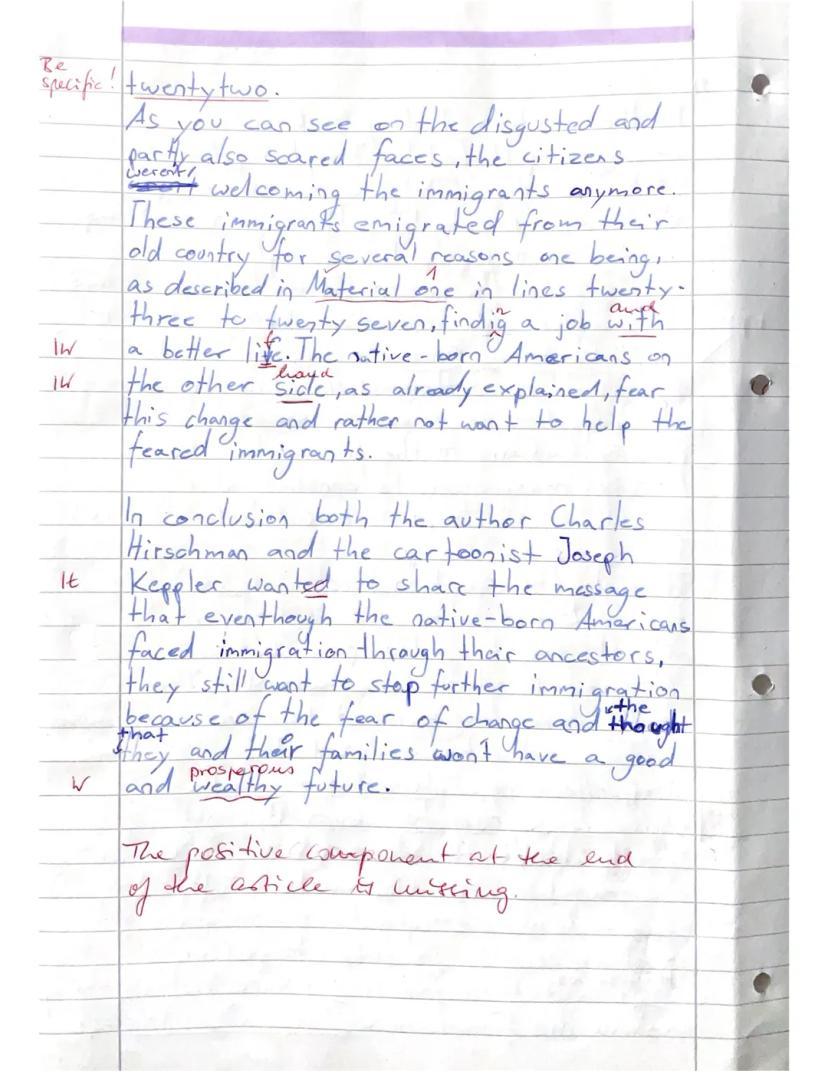 Be
specific! twentytwo.
As you can see on the disgusted and
partly also scared faces, the citizens
weren't
welcoming the immigrants anymore.
These immigrants emigrated from their
old country for several reasons one being,
1
as described in Material one in lines twenty-
in and
three to twenty seven, findig a job with
f
IW a better life. The native-born Americans on
hand
IW the other side, as already explained, fear
this change and rather not want to help the
feared immigrants.
In conclusion both the author Charles
Hirschman and the cartoonist Joseph
It Keppler wanted to share the message
that eventhough the native-born Americans
faced immigration through their ancestors,
they still want to stop further immigration
the
because of the fear of change and thought
that
they and their families won't have a good
prosperous
W and wealthy future.
The positive component at the end
of the article is missing.